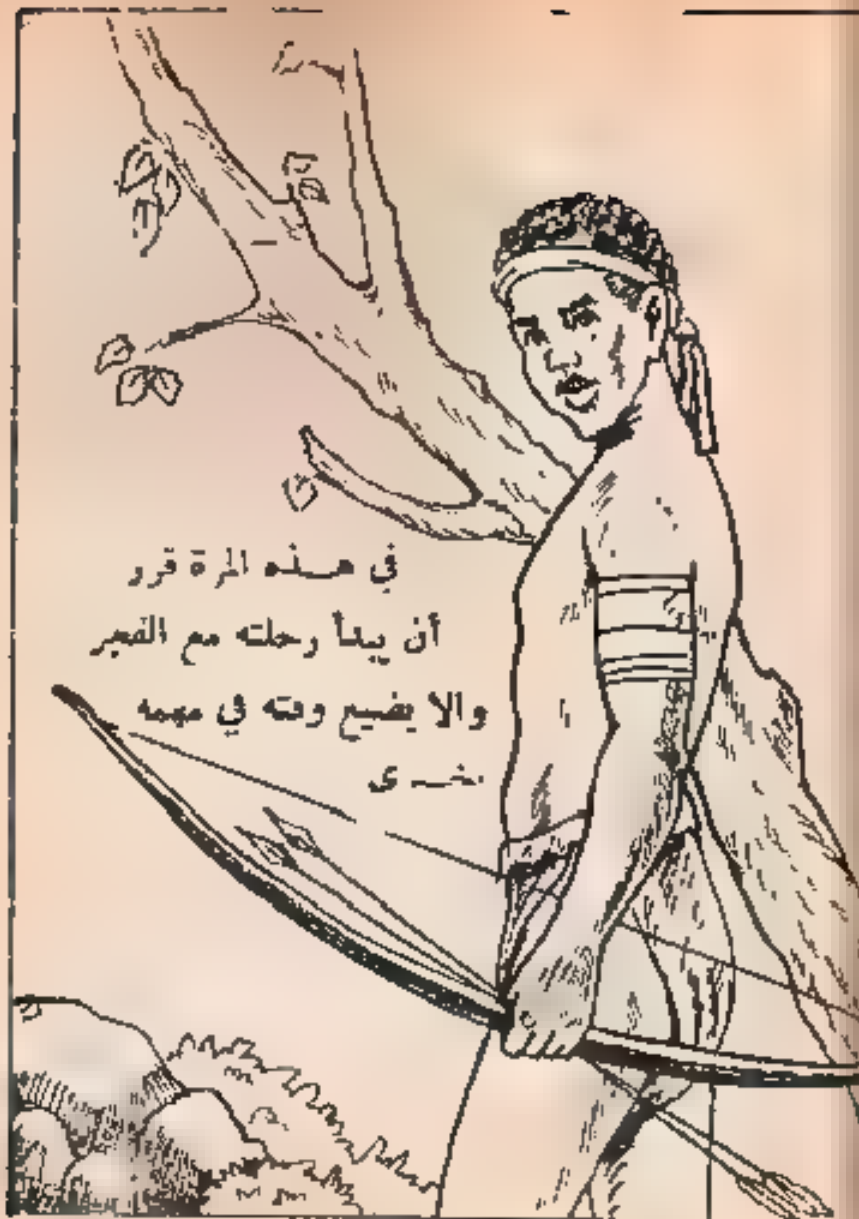 في هذه المرة قرر
أن يبدأ رحلته مع الفجر
والا يضيع وقته في مهمه